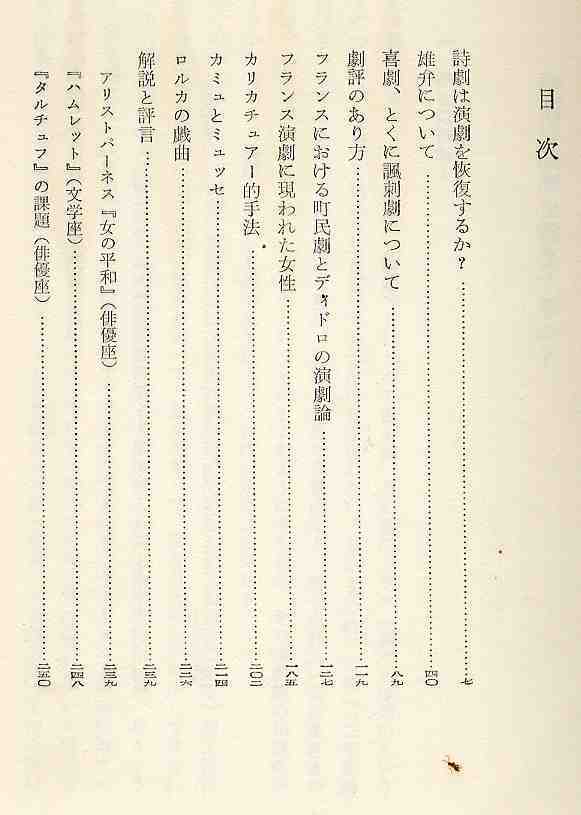 目次
詩劇は演劇を恢復するか?……七
雄弁について……四〇
喜劇、とくに諷刺劇について……八九
劇評のあり方……一一九
フランスにおける町民劇とディドロの演劇論……一二七
フランス演劇に現われた女性……一八五
カリカチュアー的手法……二〇二
カミュとミュッセ……二一四
ロルカの戯曲……二二六
解説と評言……二三九
アリストパーネス『女の平和』(俳優座)……二三九
『ハムレット』(文学座)……二四八
『タルチュフ』の課題(俳優座)……二五〇